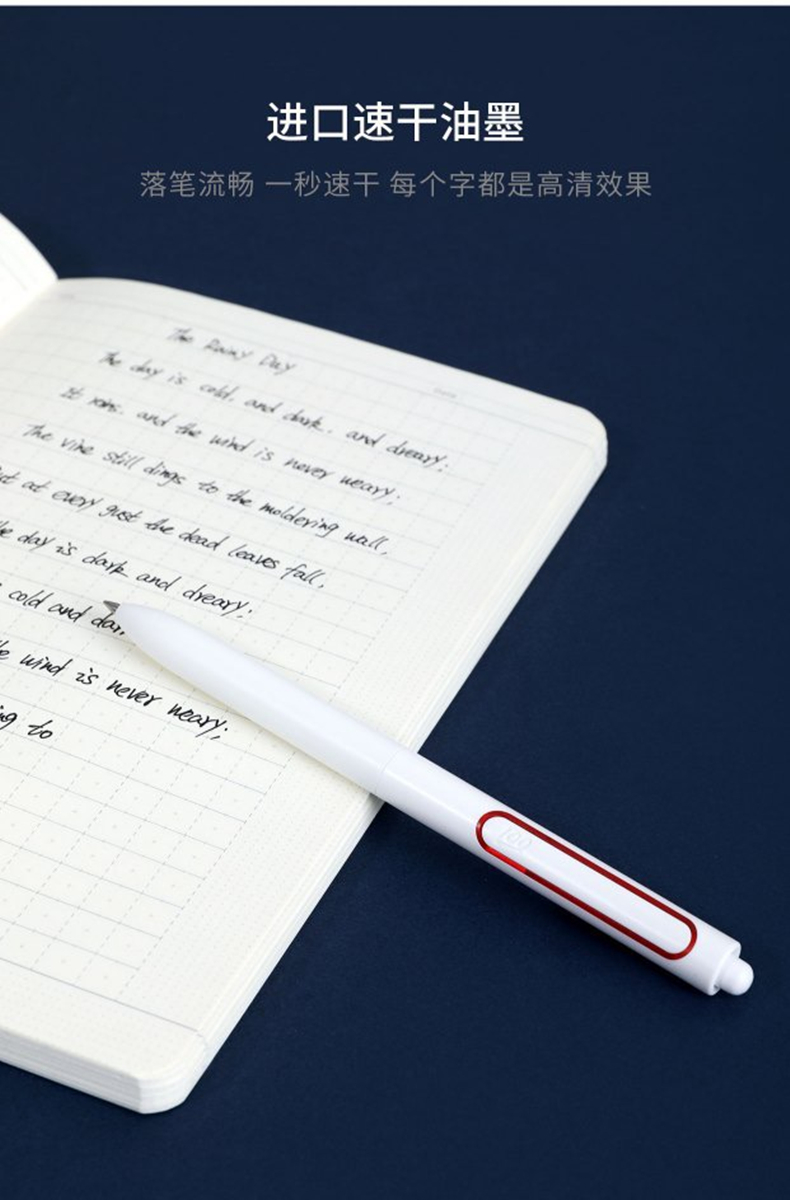 进口速干油墨
落笔流畅 一秒速干 每个字都是高清效果
The Rainy Day
The day is cold, and dark, and dreary;
It rains, and the wind is never weary;
The vine still clings to the moldering wall,
at every gust the dead leaves fall,
day is dark and dreary;
cold and dar
wind is never weary;
to